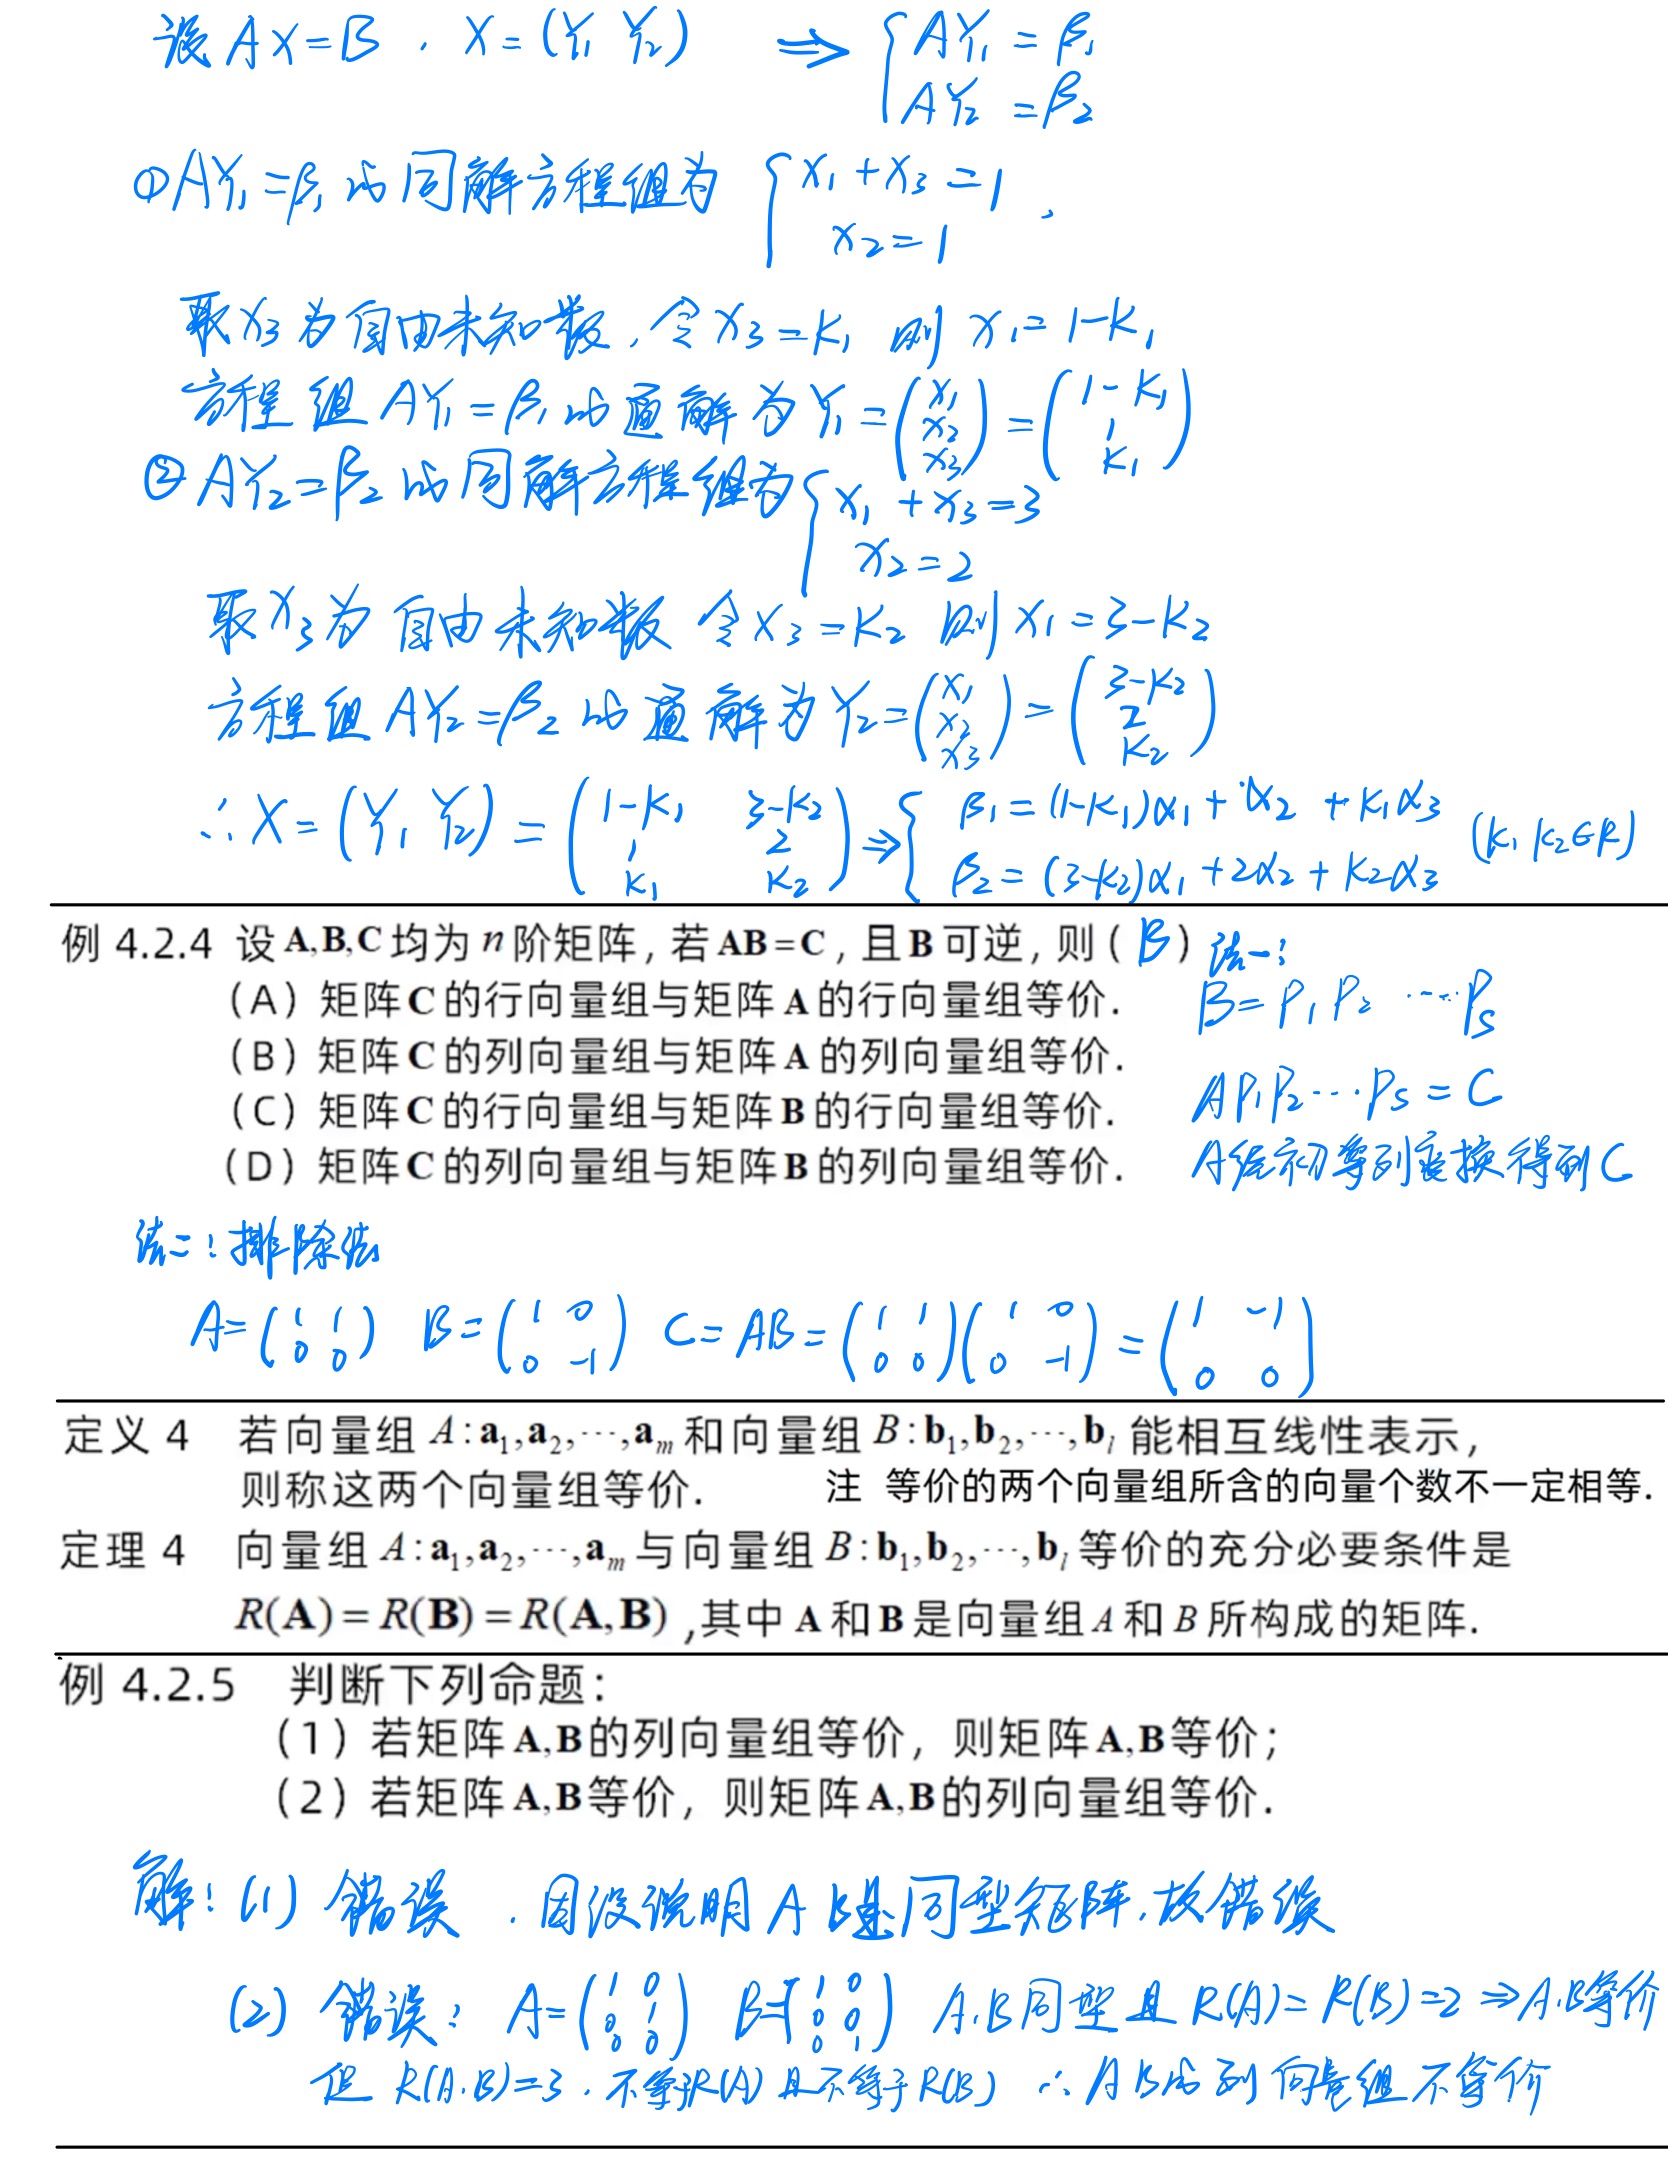 设 AX=B . X=(Y₁ Y₂) ⇒ { AY₁=β₁
AY₂=β₂
①AY₁=β₁的同解方程组为 { x₁+x₃=1 ,
x₂=1
取x₃为自由未知数,令x₃=k₁ 则 x₁=1-k₁
方程组 AY₁=β₁的通解为Y₁=(x₁ x₂ x₃)=(1-k₁ 1 k₁)
②AY₂=β₂的同解方程组为{ x₁+x₃=3
x₂=2
取x₃为自由未知数 令x₃=k₂ 则x₁=3-k₂
方程组AY₂=β₂的通解为Y₂=(x₁ x₂ x₃)=(3-k₂ 2 k₂)
∴X=(Y₁ Y₂)=(1-k₁ 3-k₂ 1 2 k₁ k₂)⇒{ β₁=(1-k₁)α₁+α₂+k₁α₃ (k₁ k₂∈R)
β₂=(3-k₂)α₁+2α₂+k₂α₃
例 4.2.4 设 A,B,C 均为 n 阶矩阵, 若 AB=C , 且 B 可逆, 则 ( B ) 法一:
(A) 矩阵 C 的行向量组与矩阵 A 的行向量组等价. B=P₁P₂ ⋯ Pₛ
(B) 矩阵 C 的列向量组与矩阵 A 的列向量组等价.
(C) 矩阵 C 的行向量组与矩阵 B 的行向量组等价. AP₁P₂⋯Pₛ=C
(D) 矩阵 C 的列向量组与矩阵 B 的列向量组等价. A经初等列变换得到C
法二:排除法
A=(1 1 0 0) B=(1 0 0 -1) C=AB=(1 1 0 0)(1 0 0 -1)=(1 -1 0 0)
定义 4 若向量组 A:a₁,a₂,⋯,aₘ 和向量组 B:b₁,b₂,⋯,bₗ 能相互线性表示,
则称这两个向量组等价. 注 等价的两个向量组所含的向量个数不一定相等.
定理 4 向量组 A:a₁,a₂,⋯,aₘ 与向量组 B:b₁,b₂,⋯,bₗ 等价的充分必要条件是
R(A)=R(B)=R(A,B) ,其中 A 和 B 是向量组 A 和 B 所构成的矩阵.
例 4.2.5 判断下列命题:
(1) 若矩阵 A,B 的列向量组等价, 则矩阵 A,B 等价;
(2) 若矩阵 A,B 等价, 则矩阵 A,B 的列向量组等价.
解:(1) 错误 .因没说明 A B是同型矩阵.故错误
(2) 错误: A=(1 0 0 1 0 0) B=(1 0 0 0 0 1) A.B同型且R(A)=R(B)=2⇒A.B等价
但 R(A.B)=3.不等于R(A)且不等于R(B) ∴ A B的列向量组不等价